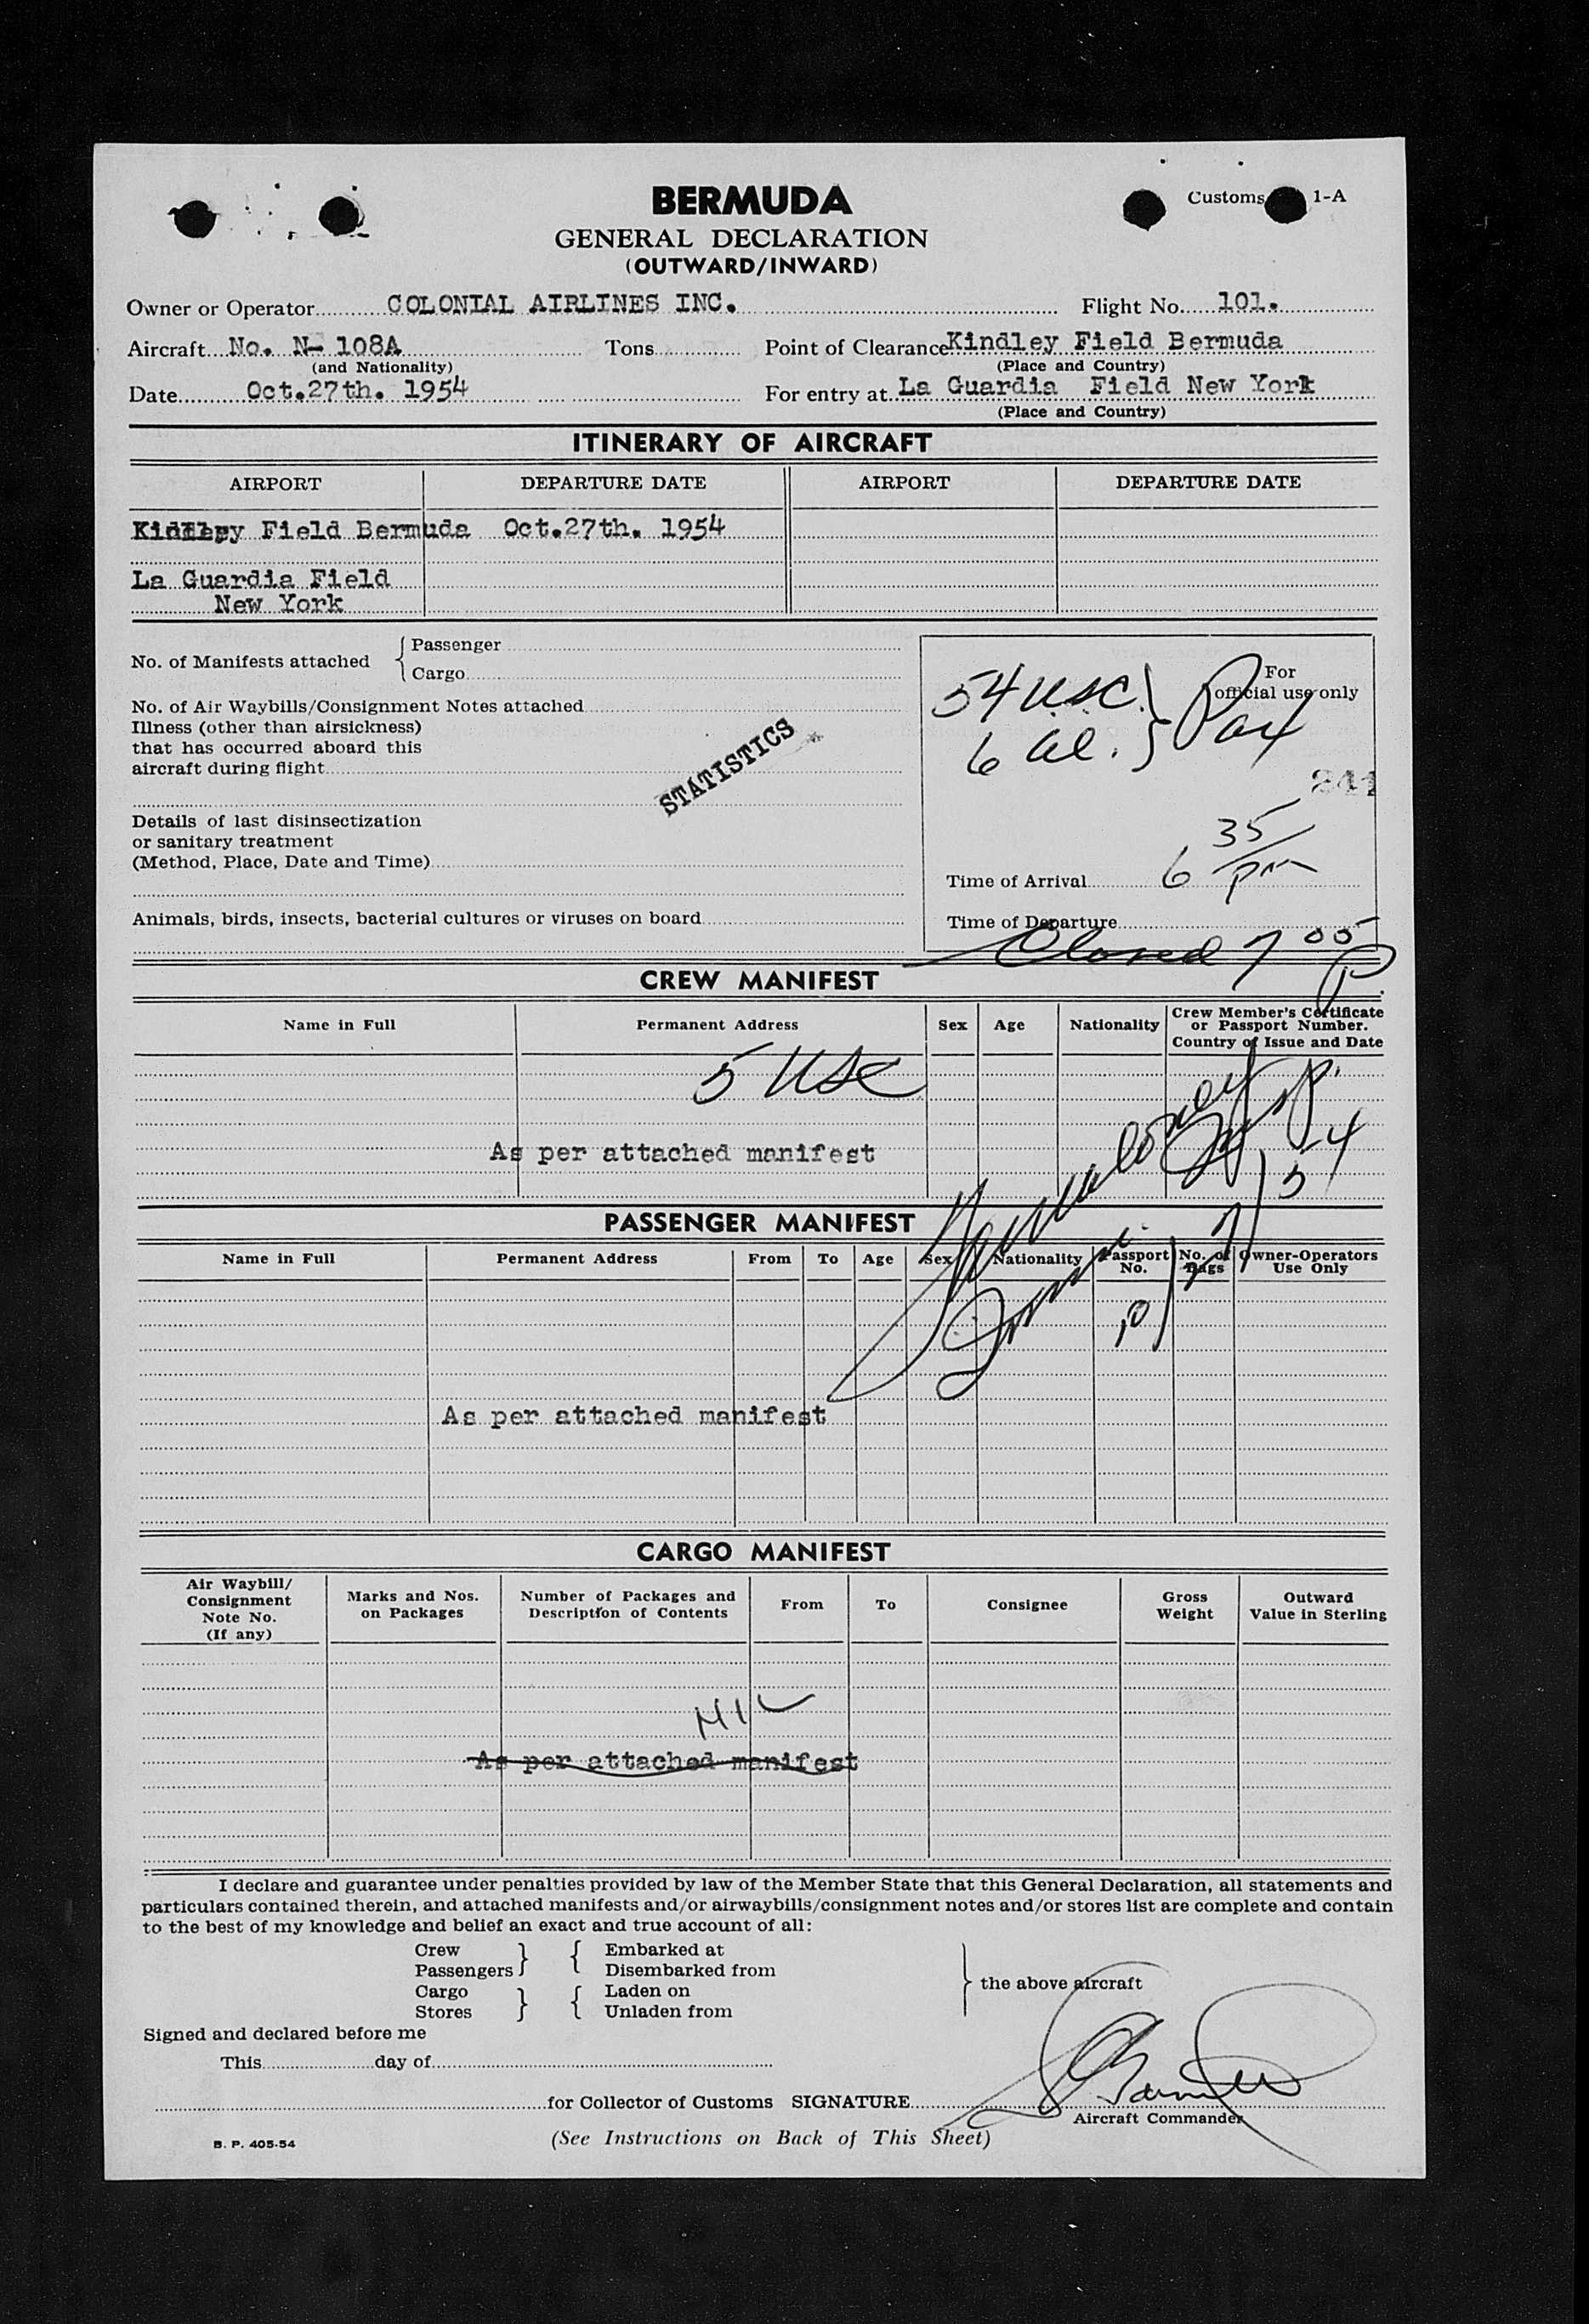 BERMUDA
Customs 1-A
GENERAL DECLARATION
(OUTWARD/INWARD)
Owner or Operator COLONIAL AIRLINES INC. Flight No. 101.
Aircraft No. N- 108A Tons Point of Clearance Kindley Field Bermuda
(and Nationality) (Place and Country)
Date Oct.27th. 1954 For entry at La Guardia Field New York
(Place and Country)
ITINERARY OF AIRCRAFT
AIRPORT DEPARTURE DATE AIRPORT DEPARTURE DATE
Kindley Field Bermuda Oct.27th. 1954
La Guardia Field
New York
No. of Manifests attached { Passenger
Cargo
No. of Air Waybills/Consignment Notes attached
Illness (other than airsickness)
that has occurred aboard this
aircraft during flight
STATISTICS
Details of last disinsectization
or sanitary treatment
(Method, Place, Date and Time)
Animals, birds, insects, bacterial cultures or viruses on board
For
official use only
54 USC } Pax
6 al.
241
Time of Arrival 6 35/pm
Time of Departure
Closed 7 05 P.
CREW MANIFEST
Name in Full Permanent Address Sex Age Nationality Crew Member's Certificate
or Passport Number.
Country of Issue and Date
5 USC
As per attached manifest
10/27/54
PASSENGER MANIFEST
Name in Full Permanent Address From To Age Sex Nationality Passport No. No. of Bags Owner-Operators Use Only
As per attached manifest
CARGO MANIFEST
Air Waybill/ Consignment Note No. (If any) Marks and Nos. on Packages Number of Packages and Description of Contents From To Consignee Gross Weight Outward Value in Sterling
NIL
As per attached manifest
I declare and guarantee under penalties provided by law of the Member State that this General Declaration, all statements and
particulars contained therein, and attached manifests and/or airwaybills/consignment notes and/or stores list are complete and contain
to the best of my knowledge and belief an exact and true account of all:
Crew } { Embarked at
Passengers Disembarked from
} the above aircraft
Cargo } { Laden on
Stores Unladen from
Signed and declared before me
This day of
for Collector of Customs SIGNATURE
Aircraft Commander
B. P. 405-54
(See Instructions on Back of This Sheet)